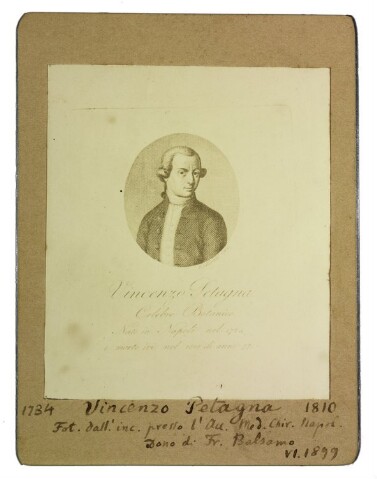 Vincenzo Petagna
Celebre Botanico
Nato in Napoli nel
e morto ivi nel
1734 Vincenzo Petagna 1810
Fot. dall' inc. presso l'Acc. Med. Chir. Napol.
Dono di Fr. Balsamo
VI. 1899